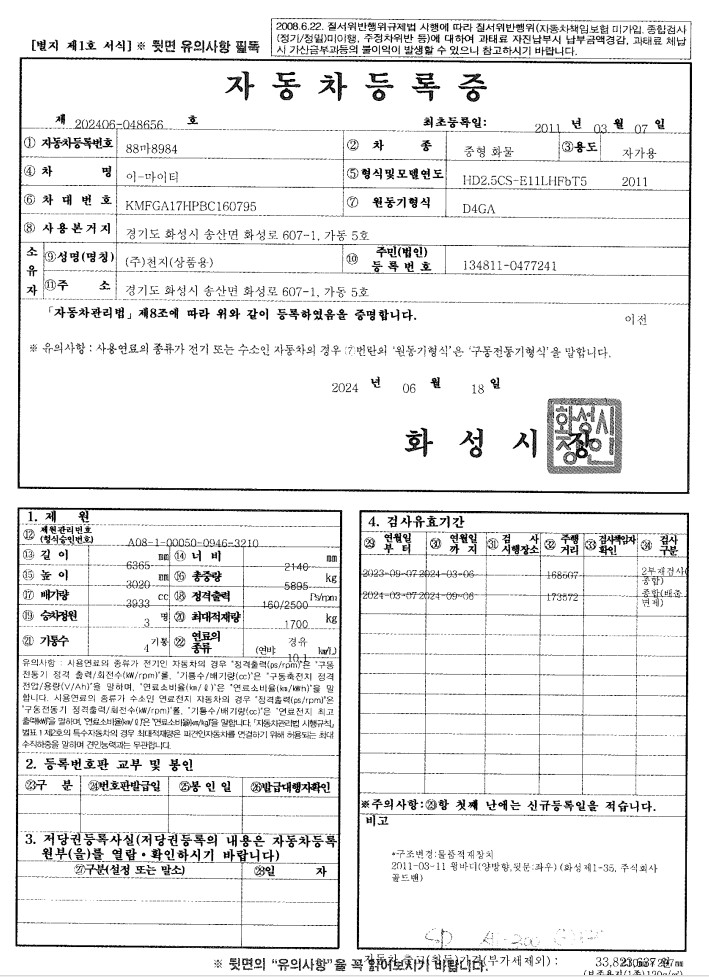 [별지 제1호 서식] ※ 뒷면 유의사항 필독
2008.6.22. 질서위반행위규제법 시행에 따라 질서위반행위(자동차책임보험 미가입, 종합검사
(정기/정밀)미이행, 주정차위반 등)에 대하여 과태료 자진납부시 납부금액경감, 과태료 체납
시 가산금부과등의 불이익이 발생할 수 있으니 참고하시기 바랍니다.
자동차등록증
제 202406-048656 호 최초등록일: 2011 년 03 월 07 일
① 자동차등록번호 88마8984 ② 차 종 중형 화물 ③용도 자가용
④ 차 명 이-마이티 ⑤형식및모델연도 HD2.5CS-E11LHFbT5 2011
⑥ 차 대 번 호 KMFGA17HPBC160795 ⑦ 원동기형식 D4GA
⑧ 사 용 본 거 지 경기도 화성시 송산면 화성로 607-1, 가동 5호
소유자 ⑨성명(명칭) (주)천지(상품용) ⑩ 주민(법인)등록번호 134811-0477241
⑪주 소 경기도 화성시 송산면 화성로 607-1, 가동 5호
「자동차관리법」 제8조에 따라 위와 같이 등록하였음을 증명합니다.
이전
※ 유의사항 : 사용연료의 종류가 전기 또는 수소인 자동차의 경우 ⑦번란의 '원동기형식'은 '구동전동기형식'을 말합니다.
2024 년 06 월 18 일
화 성 시 장
화성시
장인
1. 제 원
⑫ 제원관리번호(형식승인번호) A08-1-00050-0946-3210
⑬ 길 이 6365 mm ⑭ 너 비 2140 mm
⑮ 높 이 3020 mm ⑯ 총중량 5895 kg
⑰ 배기량 3933 cc ⑱ 정격출력 160/2500 Ps/rpm
⑲ 승차정원 3 명 ⑳ 최대적재량 1700 kg
㉑ 기통수 4 기통 ㉒ 연료의 종류 경유 (연비 10.1 km/L)
유의사항 : 사용연료의 종류가 전기인 자동차의 경우 "정격출력(ps/rpm)"은 "구동
전동기 정격 출력/회전수(kW/rpm)"를, "기통수/배기량(cc)"은 "구동축전지 정격
전압/용량(V/Ah)"을 말하며, "연료소비율(km/ℓ)"은 "연료소비율(km/kWh)"을 말
합니다. 사용연료의 종류가 수소인 연료전지 자동차의 경우 "정격출력(ps/rpm)"은
"구동전동기 정격출력/회전수(kW/rpm)"를, "기통수/배기량(cc)"은 "연료전지 최고
출력(kW)"을 말하며, "연료소비율(km/ℓ)"은 "연료소비율(km/kg)"을 말합니다. 「자동차관리법 시행규칙」
별표 1 제2호의 특수자동차의 경우 최대적재량은 피견인자동차를 연결하기 위해 허용되는 최대
수직하중을 말하며 견인능력과는 무관합니다.
2. 등록번호판 교부 및 봉인
㉓구 분 ㉔번호판발급일 ㉕봉 인 일 ㉖발급대행자확인
3. 저당권등록사실(저당권등록의 내용은 자동차등록
원부(을)를 열람・확인하시기 바랍니다)
㉗구분(설정 또는 말소) ㉘일 자
4. 검사유효기간
㉙ 연월일부터 ㉚ 연월일까지 ㉛ 검사시행장소 ㉜ 주행거리 ㉝ 검사책임자확인 ㉞ 검사구분
2023-09-07 2024-03-06 168607 2부재검사(종합)
2024-03-07 2024-09-06 173572 종합(배출면제)
※주의사항:㉙항 첫째 난에는 신규등록일을 적습니다.
비고
*구조변경:물품적재장치
2011-03-11 윙바디(양방향,뒷문:좌우) (화성제1-35, 주식회사
골드밴)
자동차 출고(취득)가격(부가세제외) : 33,823,637 원
※ 뒷면의 "유의사항"을 꼭 읽어보시기 바랍니다.